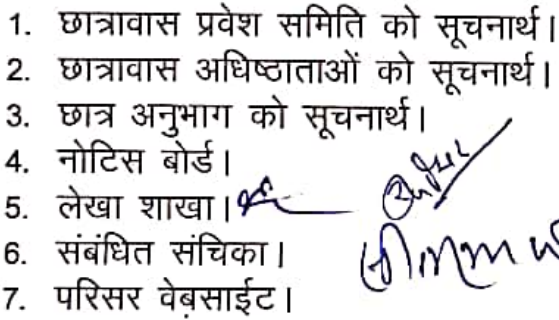 1. छात्रावास प्रवेश समिति को सूचनार्थ।
2. छात्रावास अधिष्ठाताओं को सूचनार्थ।
3. छात्र अनुभाग को सूचनार्थ।
4. नोटिस बोर्ड।
5. लेखा शाखा।
6. संबंधित संचिका।
7. परिसर वेबसाईट।